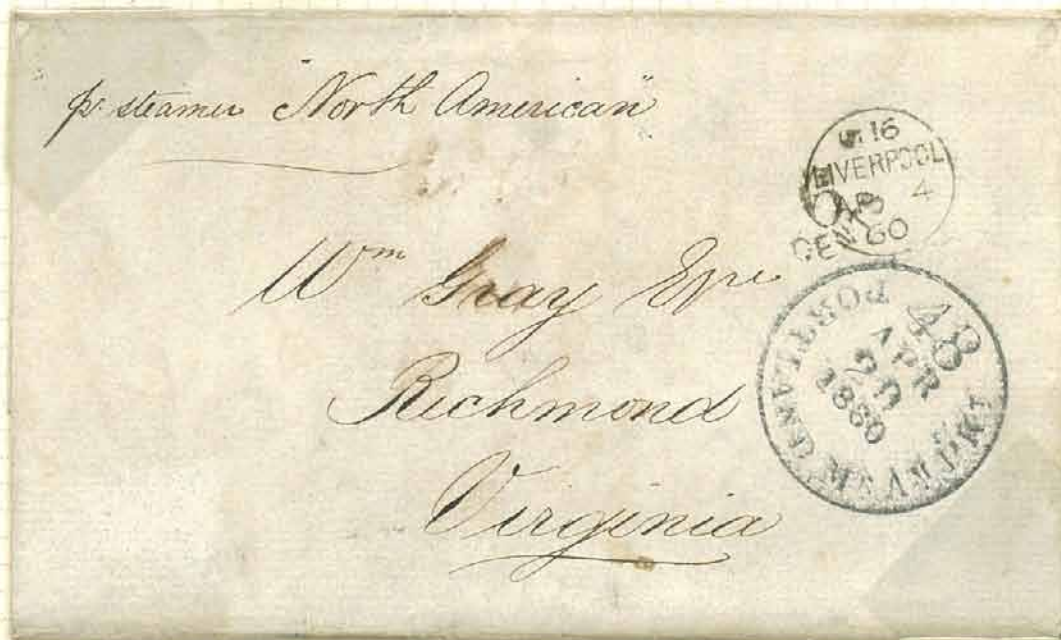 pr. steamer "North American"
16
LIVERPOOL
AP 4
60
CENTS
Wm Gray Esqre
Richmond
Virginia
48
PORTLAND ME. AM. PKT
APR
20
1860